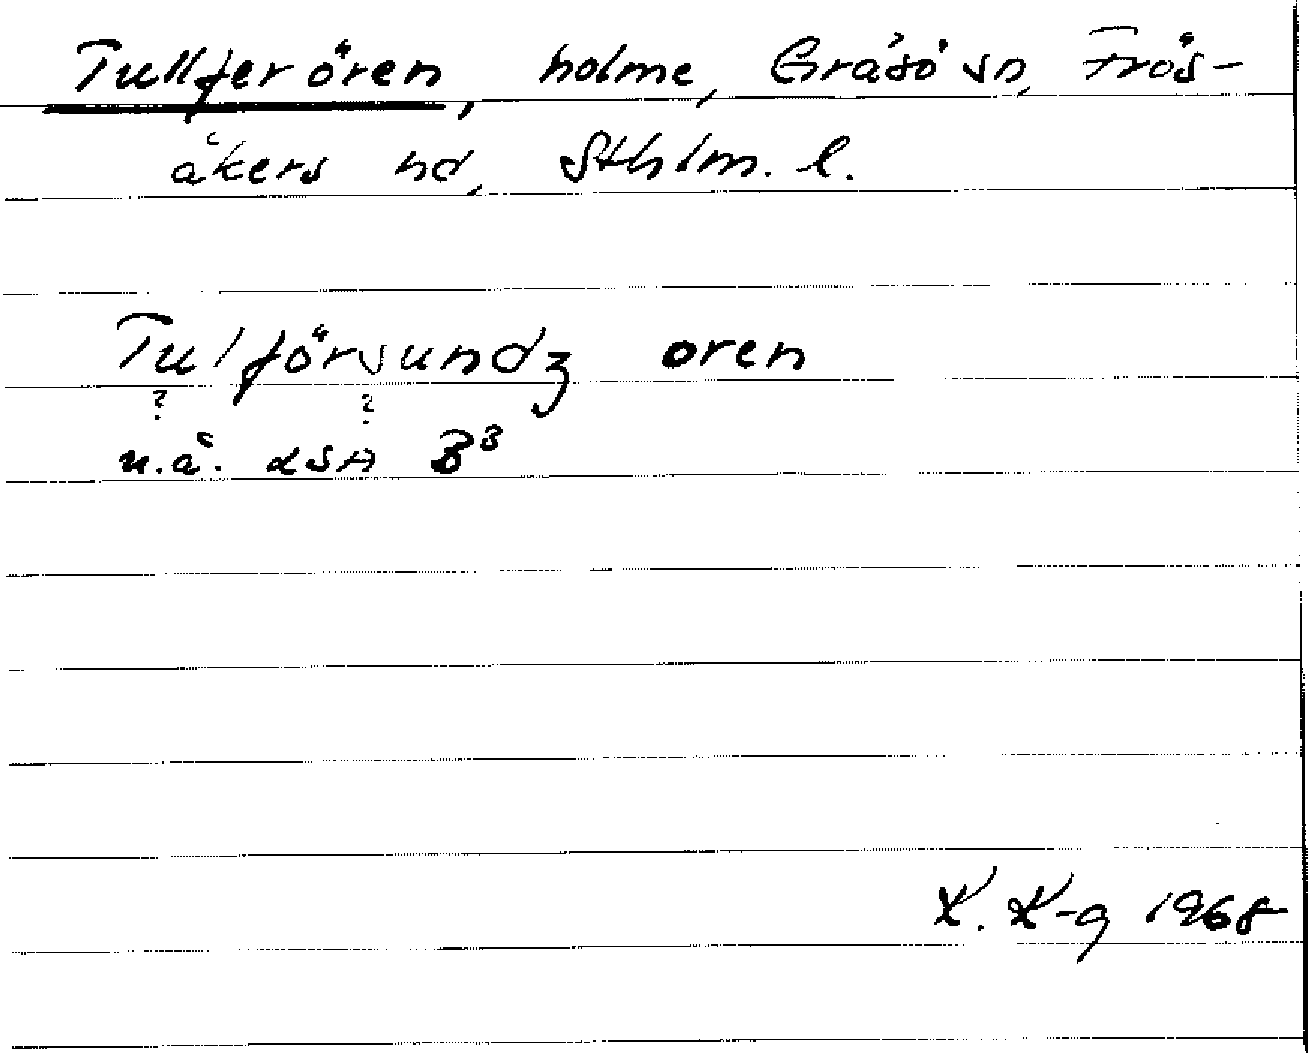 Tullferören, holme, Gräsö sn, Frös-
åkers hd, Sthlm. l.
Tulförsundz oren
? ?
u.å. LSA B3
K. K-g 1968